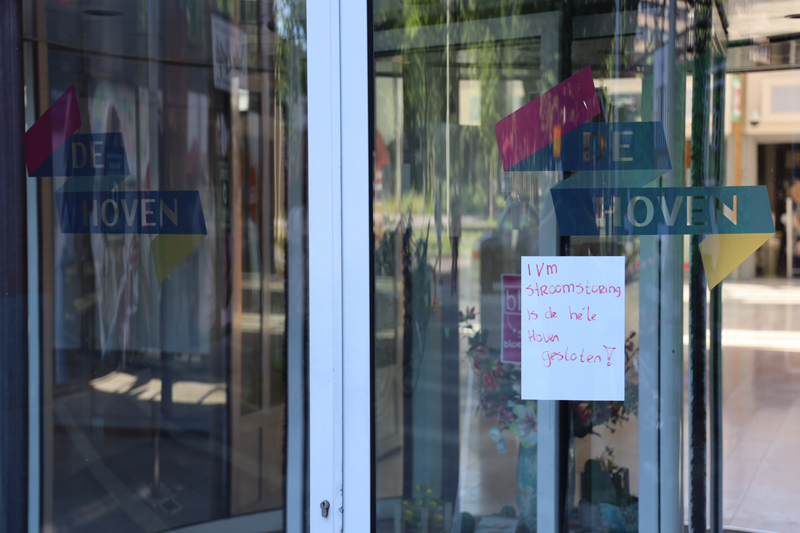 DE
HOVEN
DE
HOVEN
IVM
STROOMSTORING
is de héle
Hoven
gesloten!